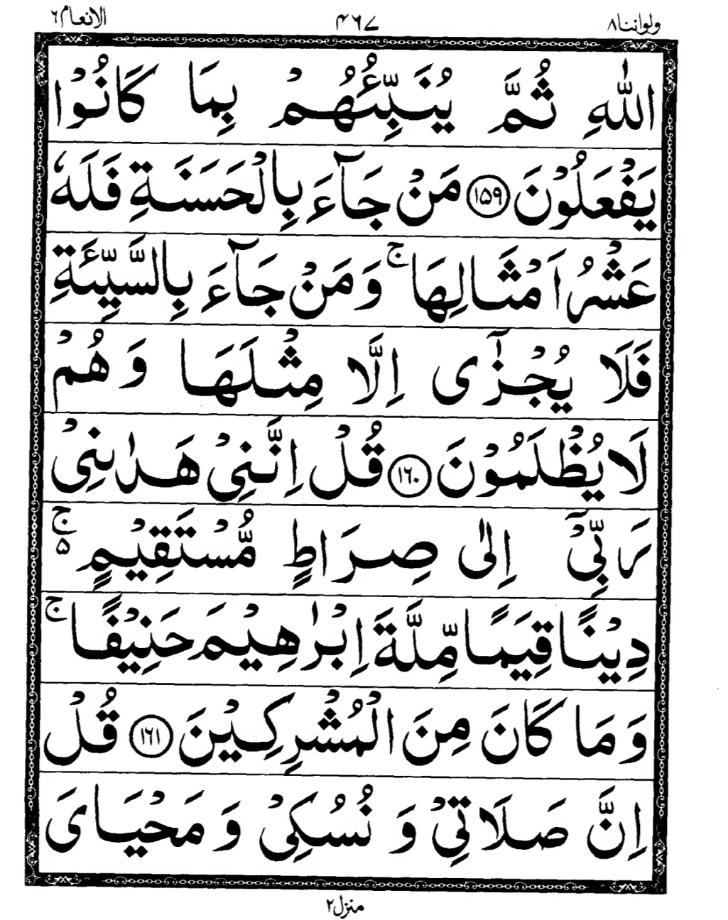 ولواننا۸ ۴۶۷ الانعام۶
اللّٰهِ ثُمَّ يُنَبِّئُهُمْ بِمَا كَانُوْا
يَفْعَلُوْنَ ﴿۱۵۹﴾ مَنْ جَآءَ بِالْحَسَنَةِ فَلَهٗ
عَشْرُ اَمْثَالِهَا ۚ وَمَنْ جَآءَ بِالسَّيِّئَةِ
فَلَا يُجْزٰٓى اِلَّا مِثْلَهَا وَهُمْ
لَا يُظْلَمُوْنَ ﴿۱۶۰﴾ قُلْ اِنَّنِيْ هَدٰىنِيْ
رَبِّيْٓ اِلٰى صِرَاطٍ مُّسْتَقِيْمٍ ۚ۵
دِيْنًا قِيَمًا مِّلَّةَ اِبْرٰهِيْمَ حَنِيْفًا ۚ
وَمَا كَانَ مِنَ الْمُشْرِكِيْنَ ﴿۱۶۱﴾ قُلْ
اِنَّ صَلَاتِيْ وَ نُسُكِيْ وَ مَحْيَايَ
منزل۲